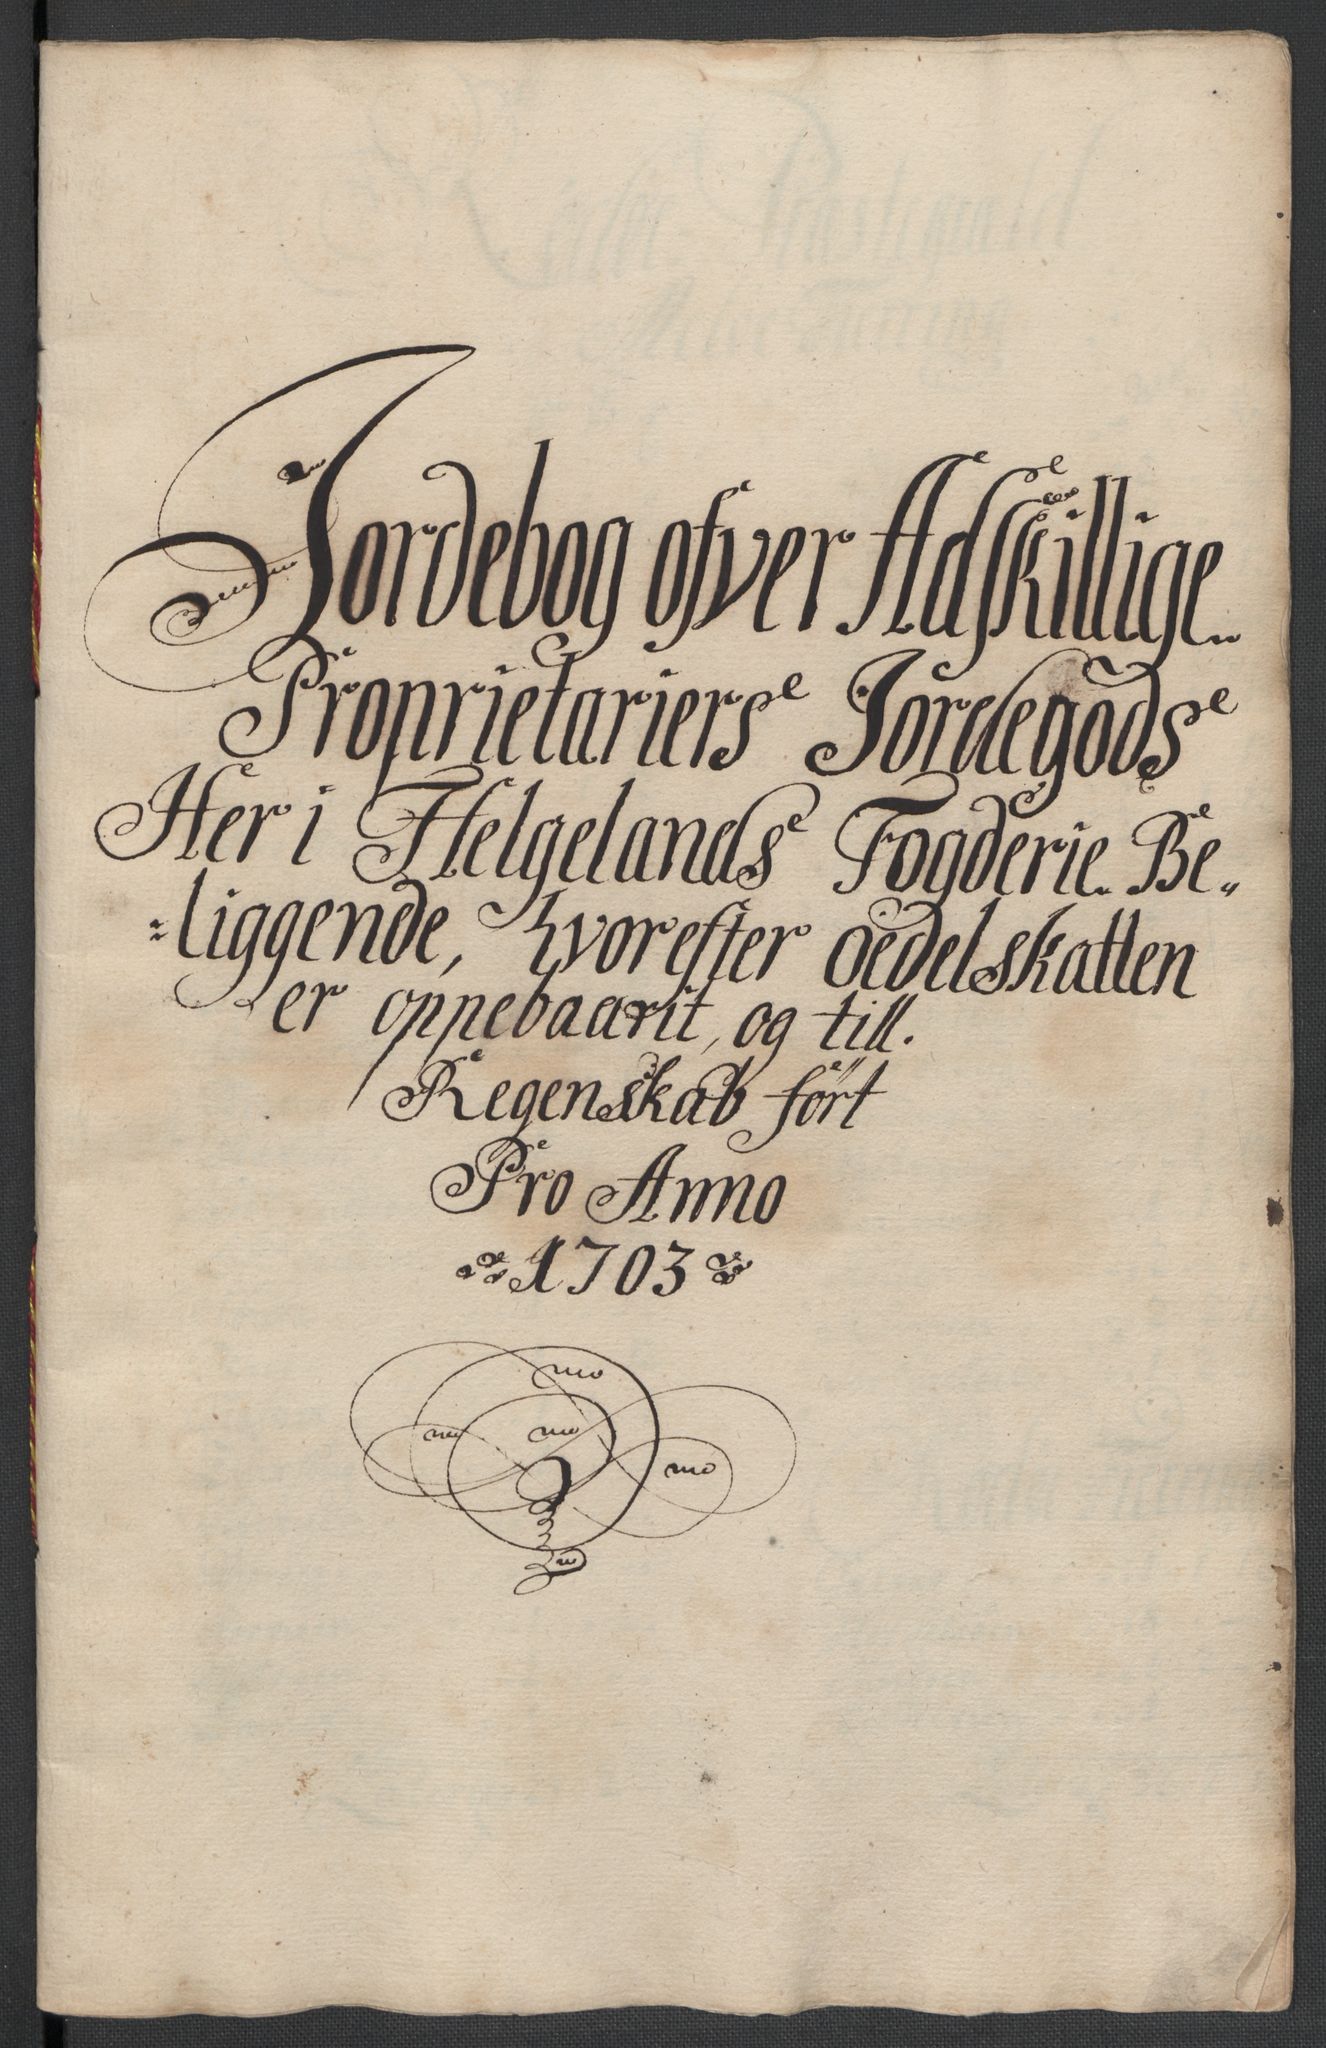 Jordebog ofver Adskillige
Proprietariers Jordegods
Her i Helgelands Fogderie Be„
⸗liggende, hvorefter Oedelskatten
er oppebaarit, og till.
Regenskab fört
Pro Anno
1703